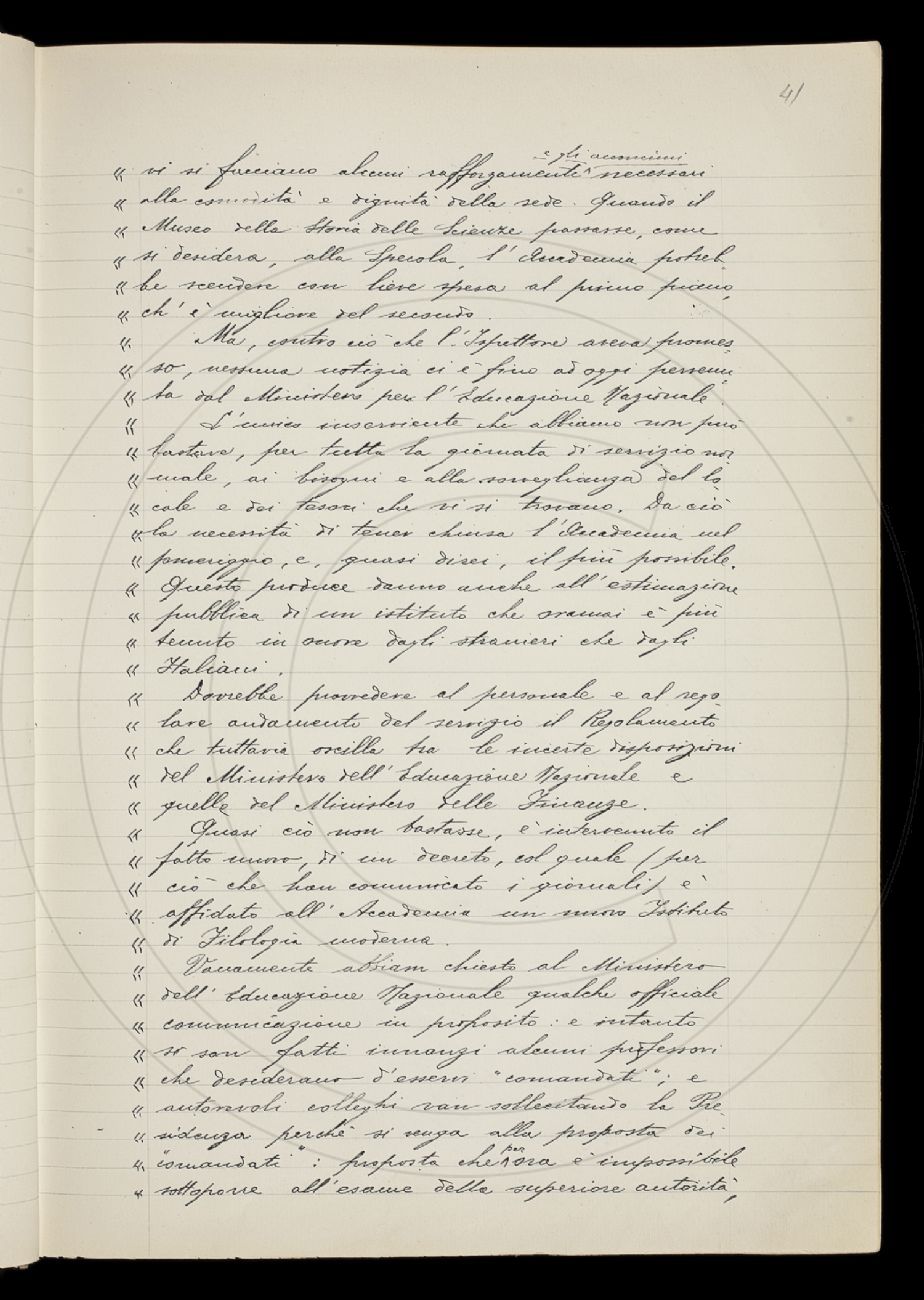 41
e gli acconcimi
« vi si facciano alcuni rafforzamenti necessari
« alla comodità e dignità della sede. Quando il
« Museo della Storia delle Scienze passasse, come
« si desidera, alla Specola, l'Accademia potreb
« be scendere con lieve spesa al primo piano,
« ch'è migliore del secondo.
« Ma, contro ciò che l'Ispettore aveva promes
« so, nessuna notizia ci è fino ad oggi pervenu
« ta dal Ministero per l'Educazione Nazionale.
« L'unico inserviente che abbiamo non può
« bastare, per tutta la giornata di servizio nor
« male, ai bisogni e alla sorveglianza del lo
« cale e dei tesori che vi si trovano. Da ciò
« la necessità di tener chiusa l'Accademia nel
« pomeriggio, e, quasi direi, il più possibile.
« Questo produce danno anche all'estimazione
« pubblica di un istituto che oramai è più
« tenuto in onore dagli stranieri che dagli
« Italiani.
« Dovrebbe provvedere al personale e al rego
« lare andamento del servizio il Regolamento
« che tuttavia oscilla tra le incerte disposizioni
« del Ministero dell'Educazione Nazionale e
« quelle del Ministero delle Finanze.
« Quasi ciò non bastasse, è intervenuto il
« fatto nuovo, di un decreto, col quale (per
« ciò che han comunicato i giornali) è
« affidato all'Accademia un nuovo Istituto
« di Filologia moderna.
« Vanamente abbiam chiesto al Ministero
« dell'Educazione Nazionale qualche officiale
« comunicazione in proposito: e intanto
« si son fatti innanzi alcuni professori
« che desiderano d'esservi "comandati"; e
« autorevoli colleghi van sollecitando la Pre
« sidenza perchè si venga alla proposta dei
« "comandati": proposta che per ora è impossibile
« sottoporre all'esame della superiore autorità,